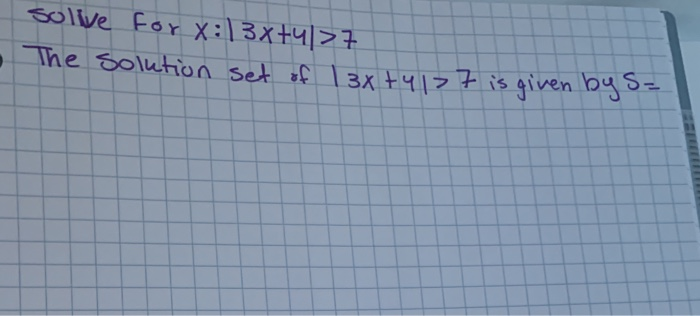 Solve For x:|3x+4|>7
The solution set of |3x+4|>7 is given by S=